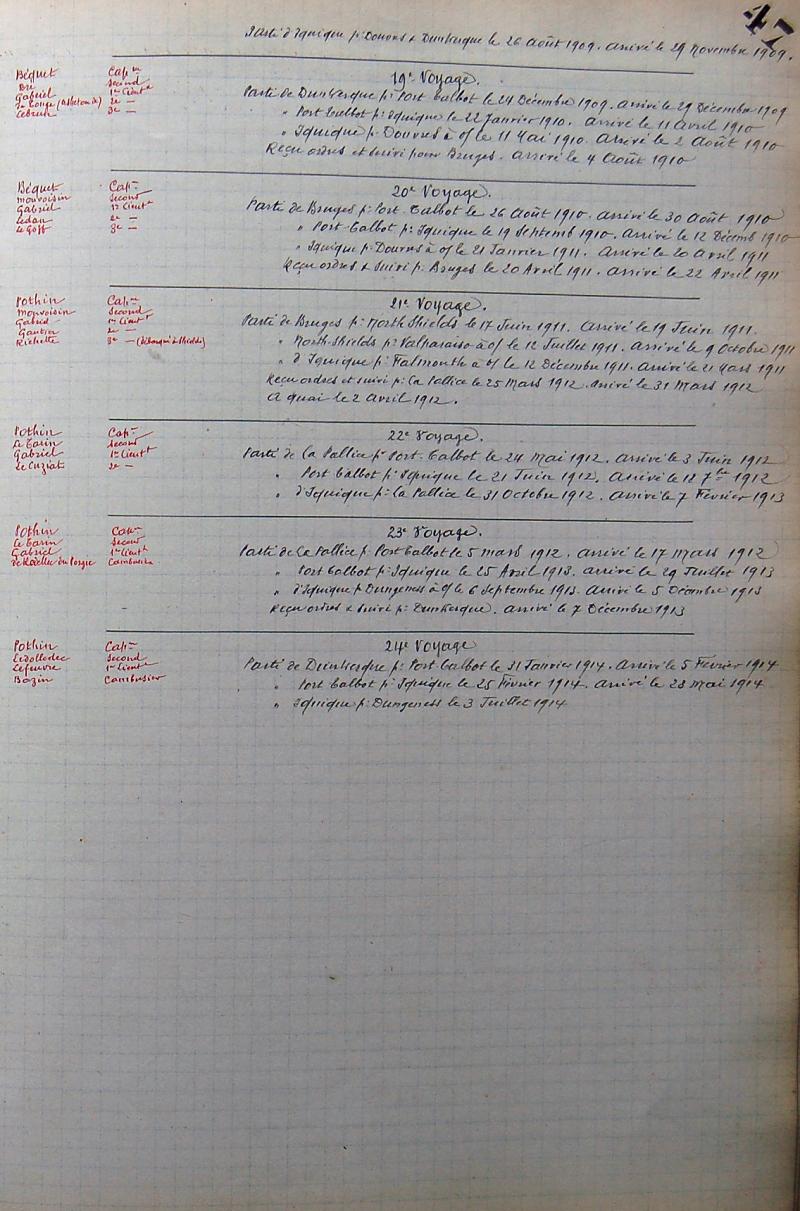 Parti d'Iquique p: Douvres & Dunkerque le 26 Août 1909. Arrivé le 29 Novembre 1909.
19e Voyage.
Béquet Capne
Second
Gabriel 1er Lieutt
2e —
Lebrun 3e —
Parti de Dunkerque p: Port Talbot le 24 Décembre 1909. Arrivé le 29 Décembre 1909
" Port Talbot p: Iquique le 22 Janvier 1910. Arrivé le 11 Avril 1910
" Iquique p: Douvres à o/ le 11 Mai 1910. Arrivé le 2 Août 1910
Reçu ordres et suivi pour Bruges. Arrivé le 4 Août 1910
20e Voyage.
Béquet Capne
Mouvoisin Second
Gabriel 1er Lieutt
2e —
Le Goff 3e —
Parti de Bruges p: Port Talbot le 26 Août 1910. Arrivé le 30 Août 1910
" Port Talbot p: Iquique le 19 Septemb 1910. Arrivé le 12 Décemb 1910
" Iquique p: Douvres à o/ le 21 Janvier 1911. Arrivé le 20 Avril 1911
Reçu ordres & suivi p: Bruges le 20 Avril 1911. Arrivé le 22 Avril 1911
21e Voyage.
Pothin Capne
Mouvoisin Second
Gabriel 1er Lieutt
Gautier 2e —
Richette 3e — (débarqué à Shields)
Parti de Bruges p: North Shields le 17 Juin 1911. Arrivé le 19 Juin 1911.
" North-Shields p: Valparaiso à o/ le 12 Juillet 1911. Arrivé le 9 Octobre 1911
" d'Iquique p: Falmouth à o/ le 12 Décembre 1911. Arrivé le 21 Mars 1911
Reçu ordres et suivi p: La Pallice le 25 Mars 1912. Arrivé le 31 Mars 1912
A quai le 2 Avril 1912.
22e Voyage.
Pothin Capne
Le Tarin Second
Gabriel 1er Lieutt
Le Cuziat 2e —
Parti de La Pallice p: Port-Talbot le 24 Mai 1912. Arrivé le 3 Juin 1912
" Port Talbot p: Iquique le 21 Juin 1912. Arrivé le 12 7bre 1912
" d'Iquique p: La Pallice le 31 Octobre 1912. Arrivé le 7 Février 1913
23e Voyage.
Pothin Capne
Le Tarin Second
Gabriel 1er Lieutt
Cambusier
Parti de La Pallice p: Port Talbot le 5 Mars 1912. Arrivé le 17 Mars 1912
" Port Talbot p: Iquique le 25 Avril 1913. Arrivé le 29 Juillet 1913
" d'Iquique p: Dungeness à o/ le 6 Septembre 1913. Arrivé le 5 Décembre 1913
Reçu ordres & suivi p: Dunkerque. Arrivé le 7 Décembre 1913
24e Voyage
Pothin Capne
Second
Lefeuvre 1er Lieutt
Bazin Cambusier
Parti de Dunkerque p: Port Talbot le 31 Janvier 1914. Arrivé le 5 Février 1914
" Port Talbot p: Iquique le 25 Février 1914. Arrivé le 28 Mai 1914
" Iquique p: Dungeness le 3 Juillet 1914